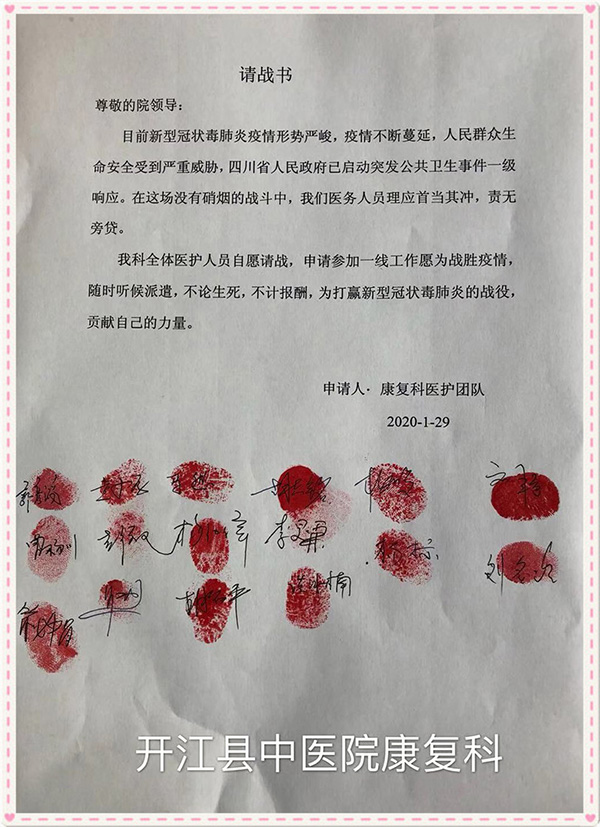 请战书
尊敬的院领导:
目前新型冠状毒肺炎疫情形势严峻，疫情不断蔓延，人民群众生
命安全受到严重威胁，四川省人民政府已启动突发公共卫生事件一级
响应。在这场没有硝烟的战斗中，我们医务人员理应首当其冲，责无
旁贷。
我科全体医护人员自愿请战，申请参加一线工作愿为战胜疫情，
随时听候派遣，不论生死，不计报酬，为打赢新型冠状毒肺炎的战役，
贡献自己的力量。
申请人·康复科医护团队
2020-1-29
开江县中医院康复科